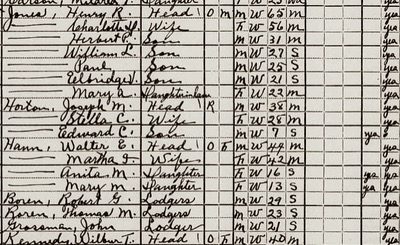 Mildred T. Daughter F W 23 S yes
Jones, Henry R. Head O M M W 65 M yes
Charlotte W. Wife F W 56 M yes
Herbert F. Son M W 31 M yes
William L. Son M W 27 S yes
Paul Son M W 25 S yes
Elbridge V. Son M W 21 S yes
Mary A. Daughter in law F W 22 M yes
Horton, Joseph M. Head R M W 38 M yes
Stella C. Wife F W 28 M yes
Edward C. Son M W 7 S yes
Hann, Walter E. Head O F M W 44 M yes
Martha I. Wife F W 42 M yes
Anita M. Daughter F W 16 S yes yes
Mary M. Daughter F W 13 S yes yes
Boren, Robert G. Lodgers M W 29 S yes
Koren, Thomas M. Lodgers M W 23 S yes
Grossman, John Lodgers M W 21 S yes
Kennedy, Wilbur T. Head O F M W 40 M yes